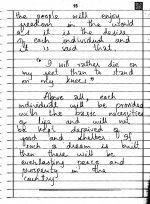 15
the people will enjoy
freedom in the world
as it is the desire
of each individual and
it is said that,
"I will rather die on
my feet than to stand
on my knees"
Above all, each
individual will be provided
with the basic necessities
of life and will not
be kept deprived of
food and shelter. If
such a dream is built
then there will be
everlasting peace and
prosperity in the
country.